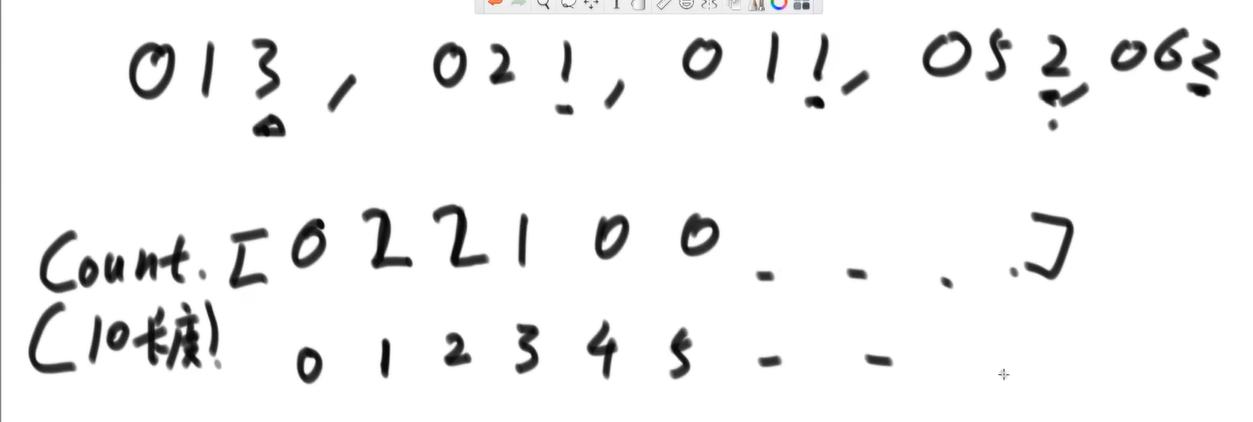 013, 021, 011, 052, 062
Count. [0 2 2 1 0 0 - - . .]
(10长度) 0 1 2 3 4 5 - -